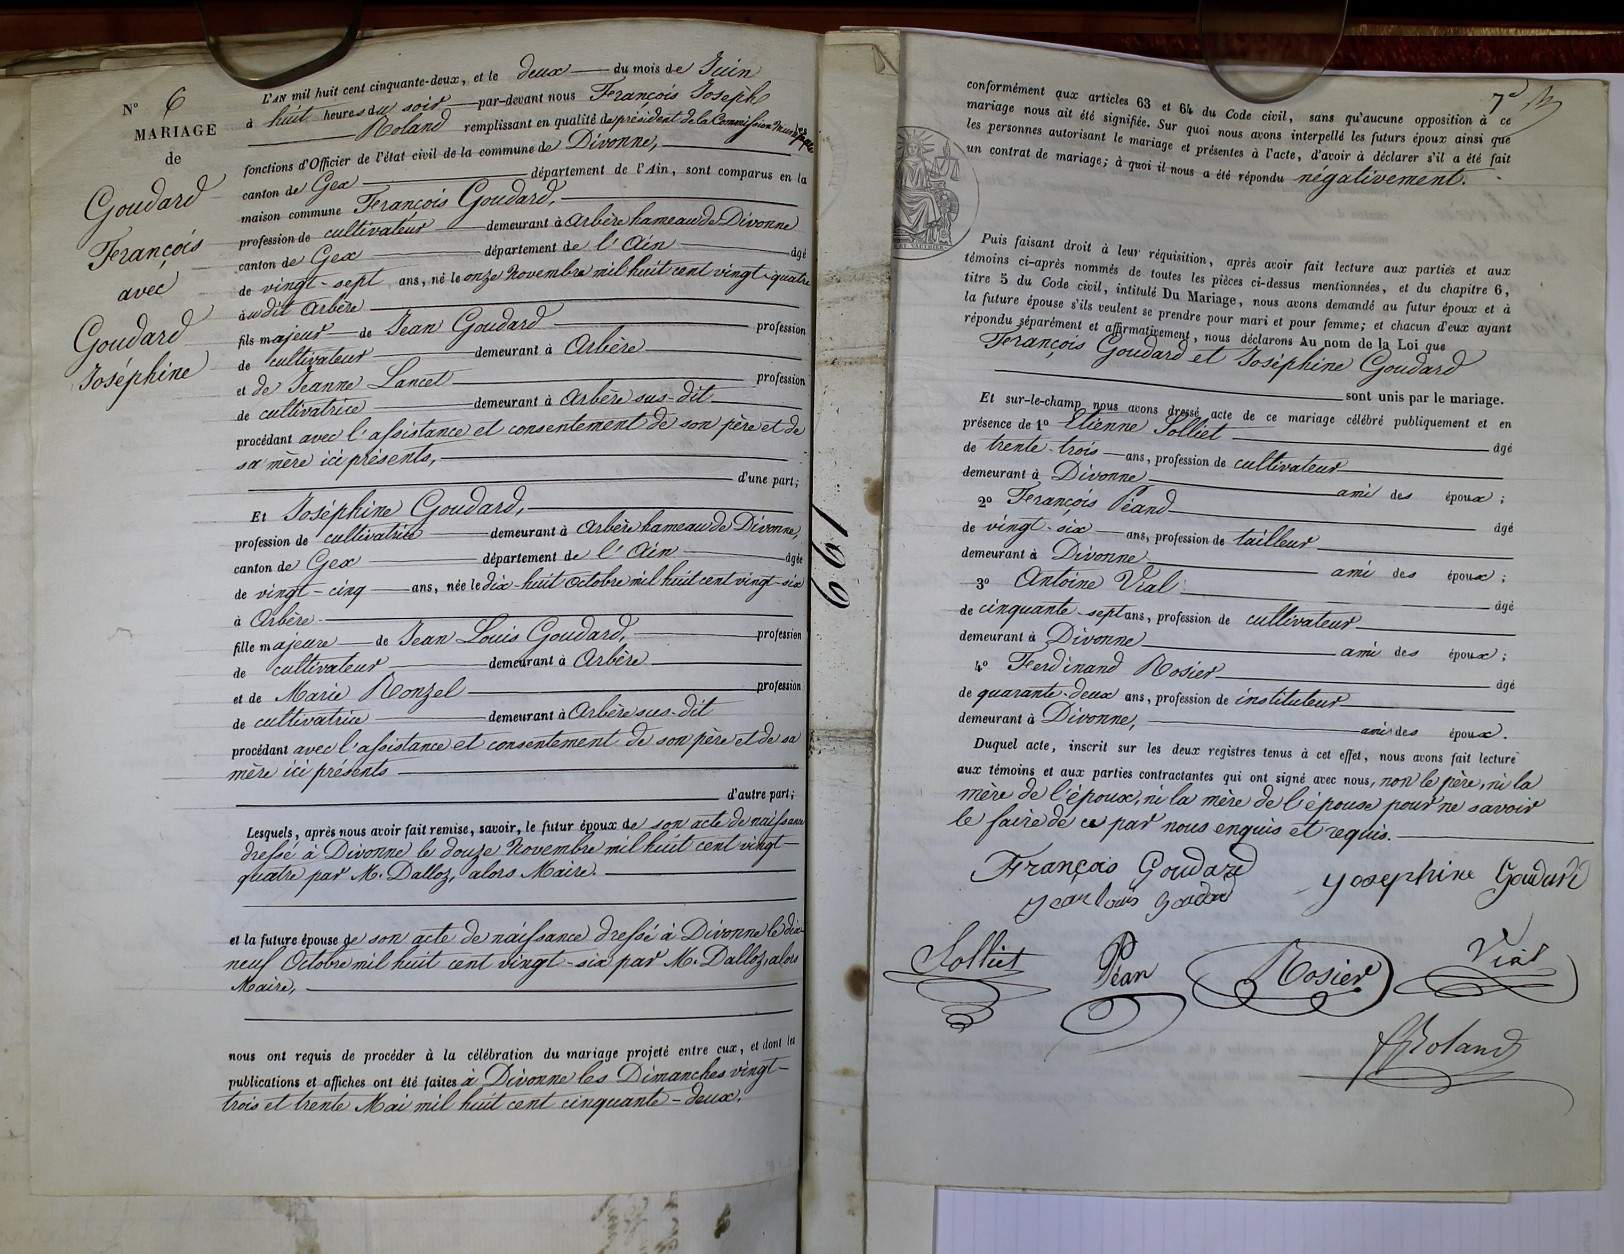 N° 6
MARIAGE
de
Goudard
François
avec
Goudard
Joséphine
L'AN mil huit cent cinquante-deux, et le deux du mois de Juin
à huit heures du soir par-devant nous François Joseph
Roland remplissant en qualité de président de la Commission municipale
fonctions d'Officier de l'état civil de la commune de Divonne,
canton de Gex département de l'Ain, sont comparus en la
maison commune François Goudard,
profession de cultivateur demeurant à Arbère hameau de Divonne
canton de Gex département de l'Ain âgé
de vingt-sept ans, né le onze Novembre mil huit cent vingt-quatre
au dit Arbère
fils majeur de Jean Goudard profession
de cultivateur demeurant à Arbère
et de Jeanne Lancet profession
de cultivatrice demeurant à Arbère sus-dit
procédant avec l'assistance et consentement de son père et de
sa mère ici présents,
d'une part;
Et Joséphine Goudard,
profession de cultivatrice demeurant à Arbère hameau de Divonne,
canton de Gex département de l'Ain âgée
de vingt-cinq ans, née le dix-huit Octobre mil huit cent vingt-six
à Arbère
fille majeure de Jean Louis Goudard, profession
de cultivateur demeurant à Arbère
et de Marie Ronzel profession
de cultivatrice demeurant à Arbère sus-dit
procédant avec l'assistance et consentement de son père et de sa
mère ici présents
d'autre part;
Lesquels, après nous avoir fait remise, savoir, le futur époux de son acte de naissance
dressé à Divonne le douze Novembre mil huit cent vingt-
quatre par M. Dalloz, alors Maire.
et la future épouse de son acte de naissance dressé à Divonne le dix-
neuf Octobre mil huit cent vingt-six par M. Dalloz, alors
Maire,
nous ont requis de procéder à la célébration du mariage projeté entre eux, et dont les
publications et affiches ont été faites à Divonne les Dimanches vingt-
trois et trente Mai mil huit cent cinquante-deux.
199
7e
conformément aux articles 63 et 64 du Code civil, sans qu'aucune opposition à ce
mariage nous ait été signifiée. Sur quoi nous avons interpellé les futurs époux ainsi que
les personnes autorisant le mariage et présentes à l'acte, d'avoir à déclarer s'il a été fait
un contrat de mariage; à quoi il nous a été répondu négativement.
Puis faisant droit à leur réquisition, après avoir fait lecture aux parties et aux
témoins ci-après nommés de toutes les pièces ci-dessus mentionnées, et du chapitre 6,
titre 5 du Code civil, intitulé Du Mariage, nous avons demandé au futur époux et à
la future épouse s'ils veulent se prendre pour mari et pour femme; et chacun d'eux ayant
répondu séparément et affirmativement, nous déclarons Au nom de la Loi que
François Goudard et Joséphine Goudard
sont unis par le mariage.
Et sur-le-champ nous avons dressé acte de ce mariage célébré publiquement et en
présence de 1° Etienne Solliet âgé
de trente-trois ans, profession de cultivateur
demeurant à Divonne ami des époux;
2° François Péand âgé
de vingt-six ans, profession de tailleur
demeurant à Divonne ami des époux;
3° Antoine Vial âgé
de cinquante-sept ans, profession de cultivateur
demeurant à Divonne ami des époux;
4° Ferdinand Rosier âgé
de quarante-deux ans, profession de instituteur
demeurant à Divonne, ami des époux.
Duquel acte, inscrit sur les deux registres tenus à cet effet, nous avons fait lecture
aux témoins et aux parties contractantes qui ont signé avec nous, non le père, ni la
mère de l'époux, ni la mère de l'épouse pour ne savoir
le faire de ce par nous enquis et requis.
François Goudard Josephine Goudard
Jean Louis Goudard
Solliet Péan Rosier Vial
Roland